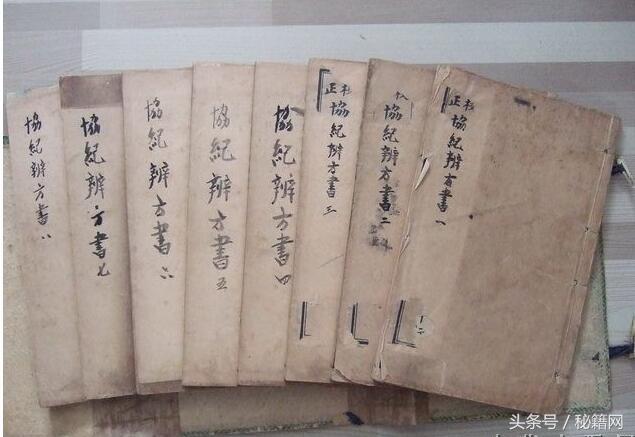 協紀辨方書一
協紀辨方書二
協紀辨方書三
協紀辨方書四
協紀辨方書五
協紀辨方書六
協紀辨方書七
協紀辨方書八
头条号 / 秘籍网